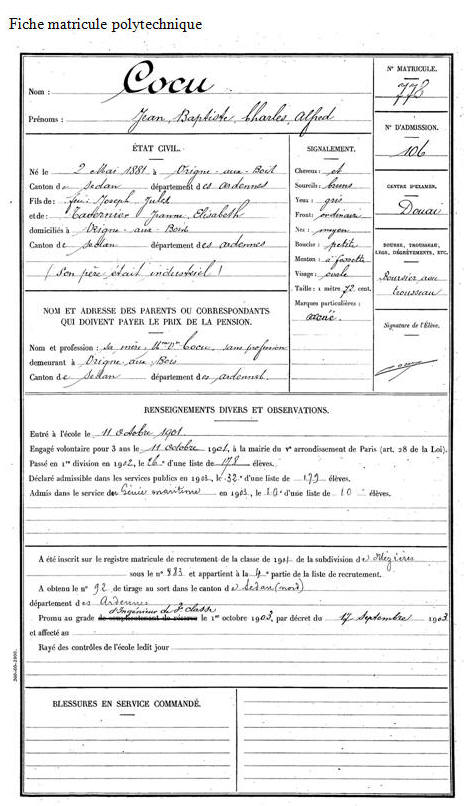 Fiche matricule polytechnique
Nom : Cocu
Prénoms : Jean Baptiste Charles Alfred
N° MATRICULE.
778
N° D'ADMISSION.
106
CENTRE D'EXAMEN.
Douai
BOURSE, TROUSSEAU, LEGS, DÉGRÈVEMENTS, ETC.
Boursier avec
trousseau
Signature de l'Élève.
ÉTAT CIVIL.
Né le 2 Mai 1881 à Vrigne-aux-Bois
Canton de Sedan département des Ardennes
Fils de : feu Joseph Jules
et de : Tavernier Jeanne Elisabeth
domiciliés à Vrigne-aux-Bois
Canton de Sedan département des Ardennes
(Son père était industriel)
SIGNALEMENT.
Cheveux : et
Sourcils : bruns
Yeux : gris
Front : ordinaire
Nez : moyen
Bouche : petite
Menton : à fossette
Visage : ovale
Taille : 1 mètre 72 cent.
Marques particulières :
NOM ET ADRESSE DES PARENTS OU CORRESPONDANTS
QUI DOIVENT PAYER LE PRIX DE LA PENSION.
Nom et profession : sa mère Mme Vve Cocu, sans profession
demeurant à Vrigne-aux-Bois
Canton de Sedan département des Ardennes.
RENSEIGNEMENTS DIVERS ET OBSERVATIONS.
Entré à l'école le 11 octobre 1901
Engagé volontaire pour 3 ans le 11 octobre 1901, à la mairie du Ve arrondissement de Paris (art. 28 de la Loi).
Passé en 1re division en 1902, le 26e d'une liste de 178 élèves.
Déclaré admissible dans les services publics en 1903, le 32e d'une liste de 179 élèves.
Admis dans le service du Génie maritime en 1903, le 10e d'une liste de 10 élèves.
A été inscrit sur le registre matricule de recrutement de la classe de 1901 de la subdivision de Mézières
sous le n° 883 et appartient à la 4e partie de la liste de recrutement.
A obtenu le n° 92 de tirage au sort dans le canton de Sedan (nord)
département des Ardennes
d'Ingénieur de 3e classe
Promu au grade de sous-lieutenant de réserve le 1er octobre 1903, par décret du 17 Septembre 1903
et affecté au
Rayé des contrôles de l'école ledit jour
BLESSURES EN SERVICE COMMANDÉ.